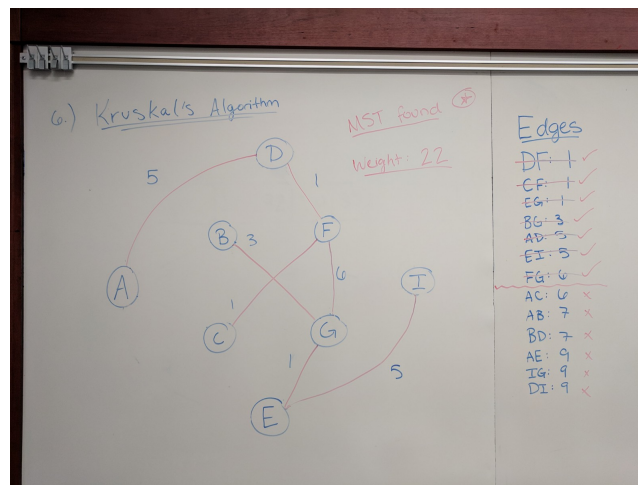 6.) Kruskal's Algorithm
MST found *
Weight: 22
5
D
1
B
3
F
A
6
I
C
1
G
1
5
E
Edges
DF: 1 ✓
CF: 1 ✓
EG: 1 ✓
BG: 3 ✓
AD: 5 ✓
EI: 5 ✓
FG: 6 ✓
AC: 6 ×
AB: 7 ×
BD: 7 ×
AE: 9 ×
IG: 9 ×
DI: 9 ×